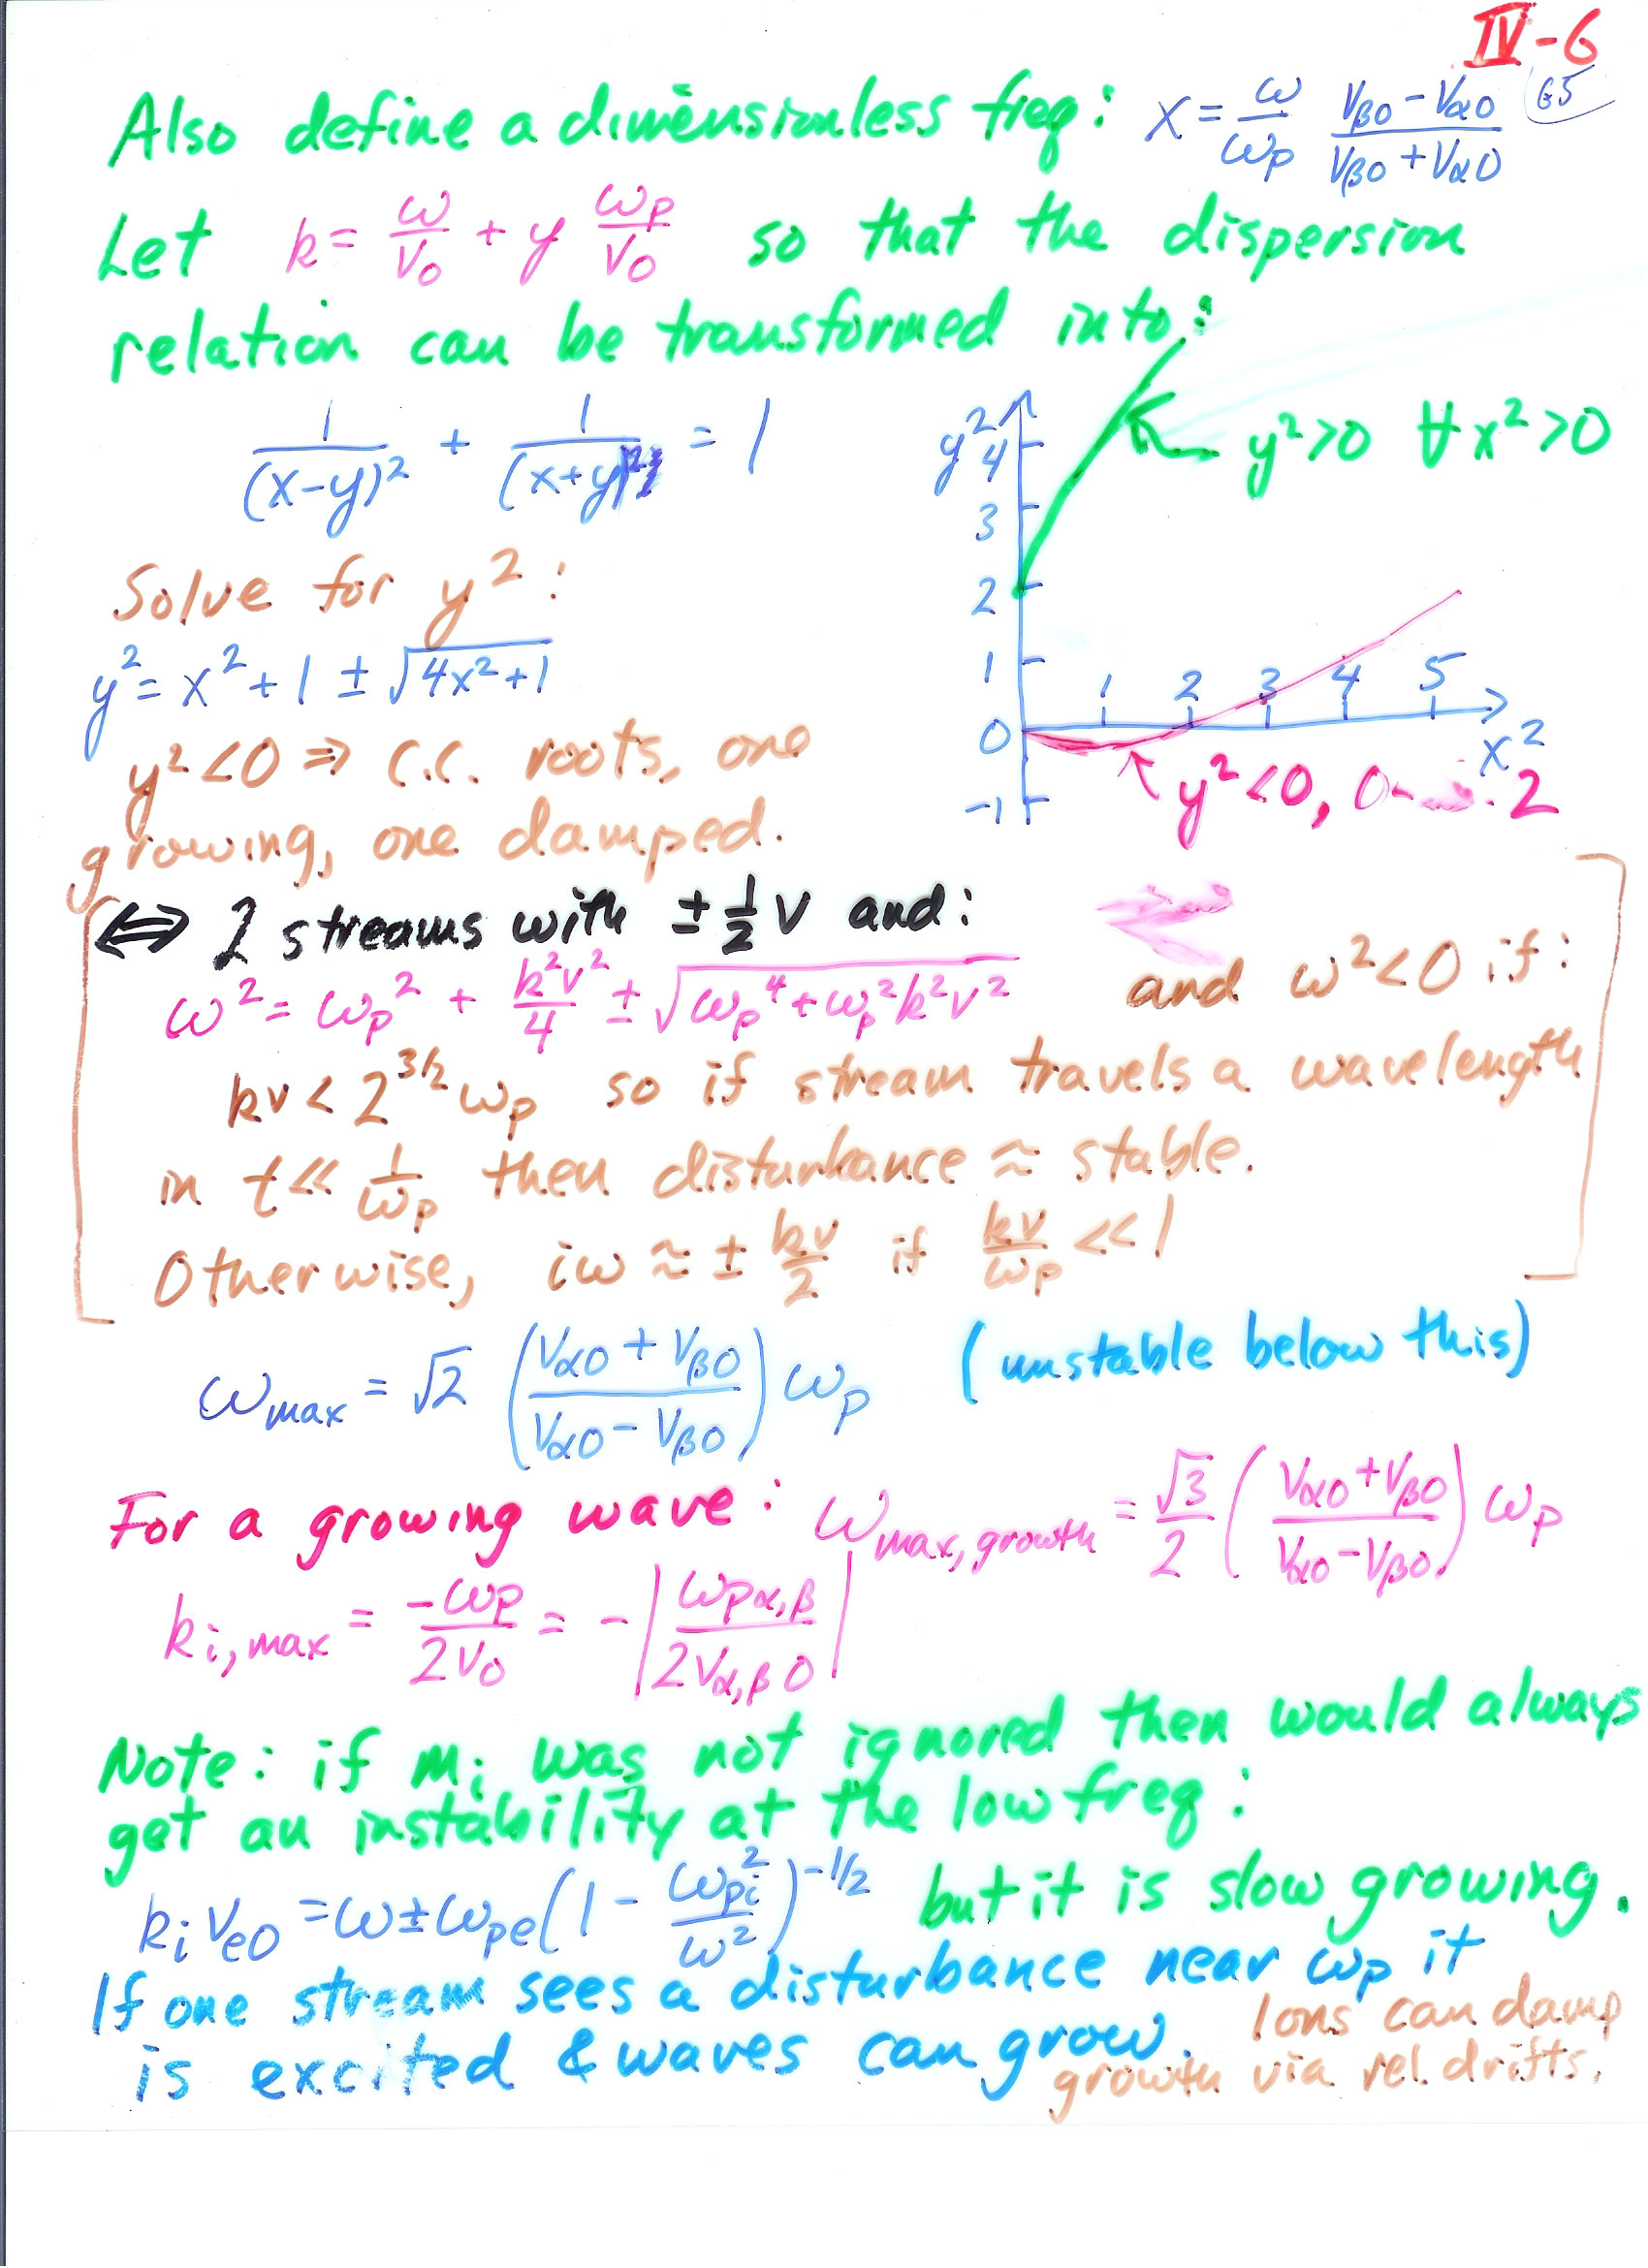 IV-6
65
Also define a dimensionless freq: x = ω/ωp (Vβ0 - Vα0)/(Vβ0 + Vα0)
Let k = ω/V0 + y ωp/V0 so that the dispersion
relation can be transformed into:
1/(x-y)² + 1/(x+y)² = 1
y² 4 3 2 1 0 -1
1 2 3 4 5 x²
y²>0 ∀ x²>0
y²<0, 0 - 2
Solve for y²:
y² = x² + 1 ± √(4x²+1)
y²<0 ⇒ c.c. roots, one
growing, one damped.
⟺ 2 streams with ± ½ v and:
ω² = ωp² + k²v²/4 ± √(ωp⁴ + ωp²k²v²) and ω²<0 if:
kv < 2^(3/2) ωp so if stream travels a wavelength
in t << 1/ωp then disturbance ≈ stable.
Otherwise, iω ≈ ± kv/2 if kv/ωp << 1
ωmax = √2 ((Vα0 + Vβ0)/(Vα0 - Vβ0)) ωp (unstable below this)
For a growing wave: ωmax,growth = √3/2 ((Vα0 + Vβ0)/(Vα0 - Vβ0)) ωp
ki,max = -ωp/2V0 = -|ωpα,β/2Vα,β0|
Note: if mi was not ignored then would always
get an instability at the low freq:
ki Ve0 = ω ± ωpe(1 - ωpi²/ω²)^(-1/2) but it is slow growing.
If one stream sees a disturbance near ωp it
is excited & waves can grow.
Ions can damp
growth via rel. drifts.